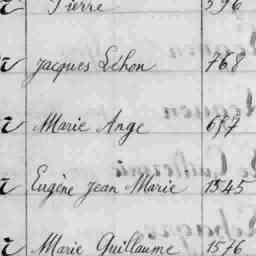 Pierre 396
Jacques Léhon 768
Marie Ange 637
Eugène Jean Marie 1345
Marie Guillaume 1576